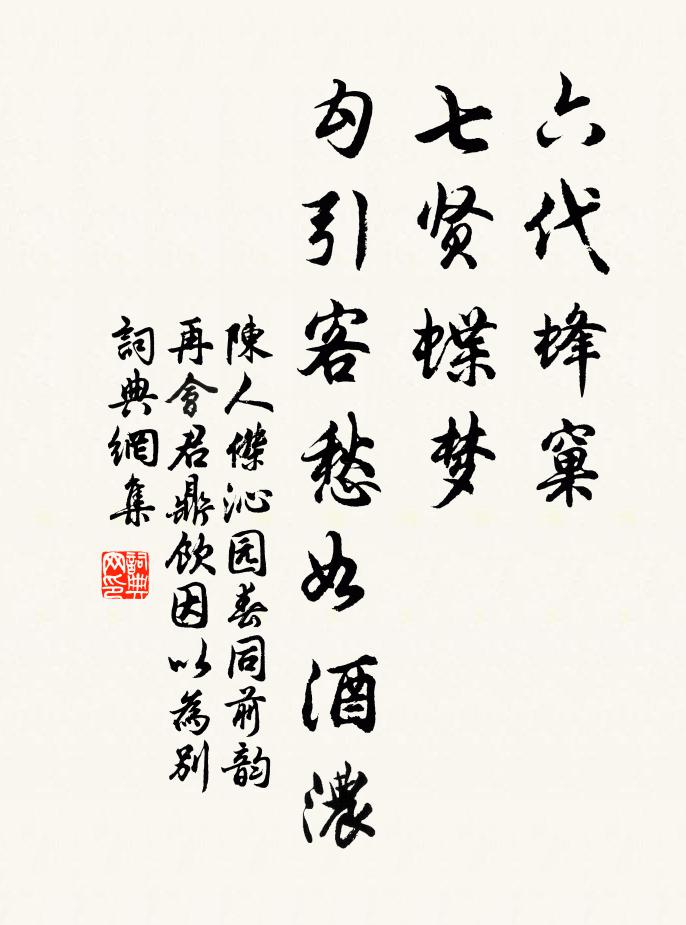 六代蜂窠
七贤蝶梦
勾引客愁如酒濃
陳人傑沁园春同前韵
再會君鼎飲因以為别
詞典網集
詞典網印